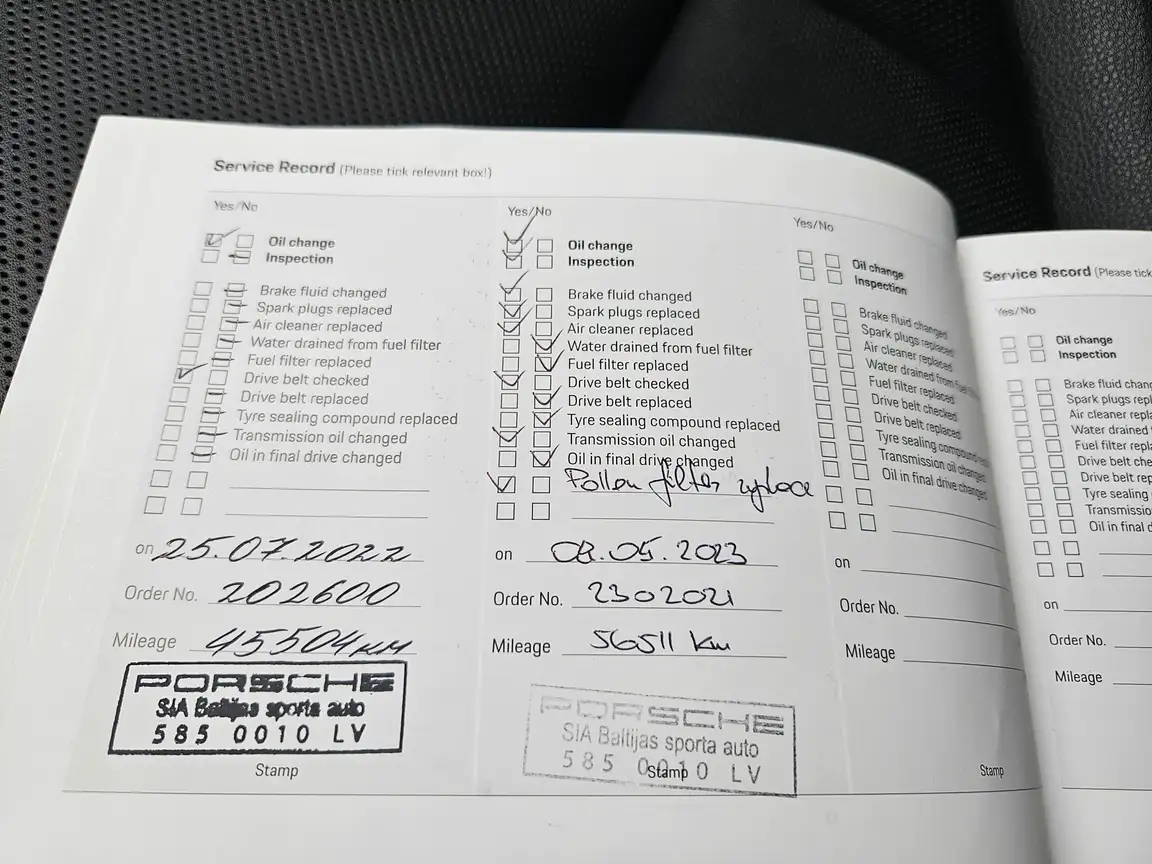 Service Record (Please tick relevant box!)
Yes/No
Oil change
Inspection
Brake fluid changed
Spark plugs replaced
Air cleaner replaced
Water drained from fuel filter
Fuel filter replaced
Drive belt checked
Drive belt replaced
Tyre sealing compound replaced
Transmission oil changed
Oil in final drive changed
on 25.07.2022
Order No. 202600
Mileage 45504 км
PORSCHE
SIA Baltijas sporta auto
585 0010 LV
Stamp
Yes/No
Oil change
Inspection
Brake fluid changed
Spark plugs replaced
Air cleaner replaced
Water drained from fuel filter
Fuel filter replaced
Drive belt checked
Drive belt replaced
Tyre sealing compound replaced
Transmission oil changed
Oil in final drive changed
Pollen filter
on 08.05.2023
Order No. 2302021
Mileage 56511 km
PORSCHE
SIA Baltijas sporta auto
585 0010 LV
Stamp
Yes/No
Oil change
Inspection
Brake fluid changed
Spark plugs replaced
Air cleaner replaced
Water drained from
Fuel filter replaced
Drive belt checked
Drive belt replaced
Tyre sealing compound
Transmission oil changed
Oil in final drive changed
on
Order No.
Mileage
Stamp
Service Record (Please tick
Yes/No
Oil change
Inspection
Brake fluid chan
Spark plugs repl
Air cleaner repla
Water drained
Fuel filter repla
Drive belt che
Drive belt rep
Tyre sealing
Transmissio
Oil in final d
on
Order No.
Mileage